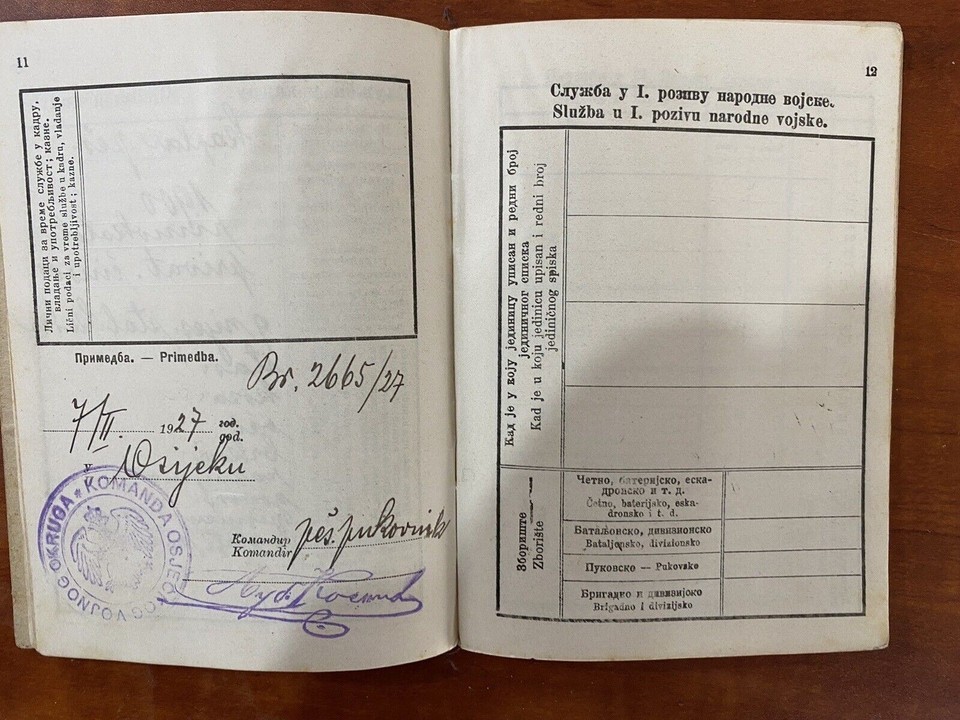 11
Лични подаци за време службе у кадру,
владање и употребљивост; казне.
Lični podaci za vreme službe u kadru, vladanje
i upotrebljivost; kazne.
Примедба. — Primedba.
Br. 2665/27
7/II. 1927 год.
god.
у Osijeku
KOMANDA OSJEČKOG VOJNOG OKRUGA
Командир
Komandir
peš. pukovnik
12
Служба у I. позиву народне војске.
Služba u I. pozivu narodne vojske.
Кад је у коју јединицу уписан и редни број
јединичног списка
Kad je u koju jedinicu upisan i redni broj
jediničnog spiska
Збориште
Zborište
Четно, батеријско, еска-
дронско и т. д.
Četno, baterijsko, eska-
dronsko i t. d.
Батаљонско, дивизионско
Bataljonsko, divizionsko
Пуковско — Pukovsko
Бригадно и дивизијско
Brigadno i divizijsko